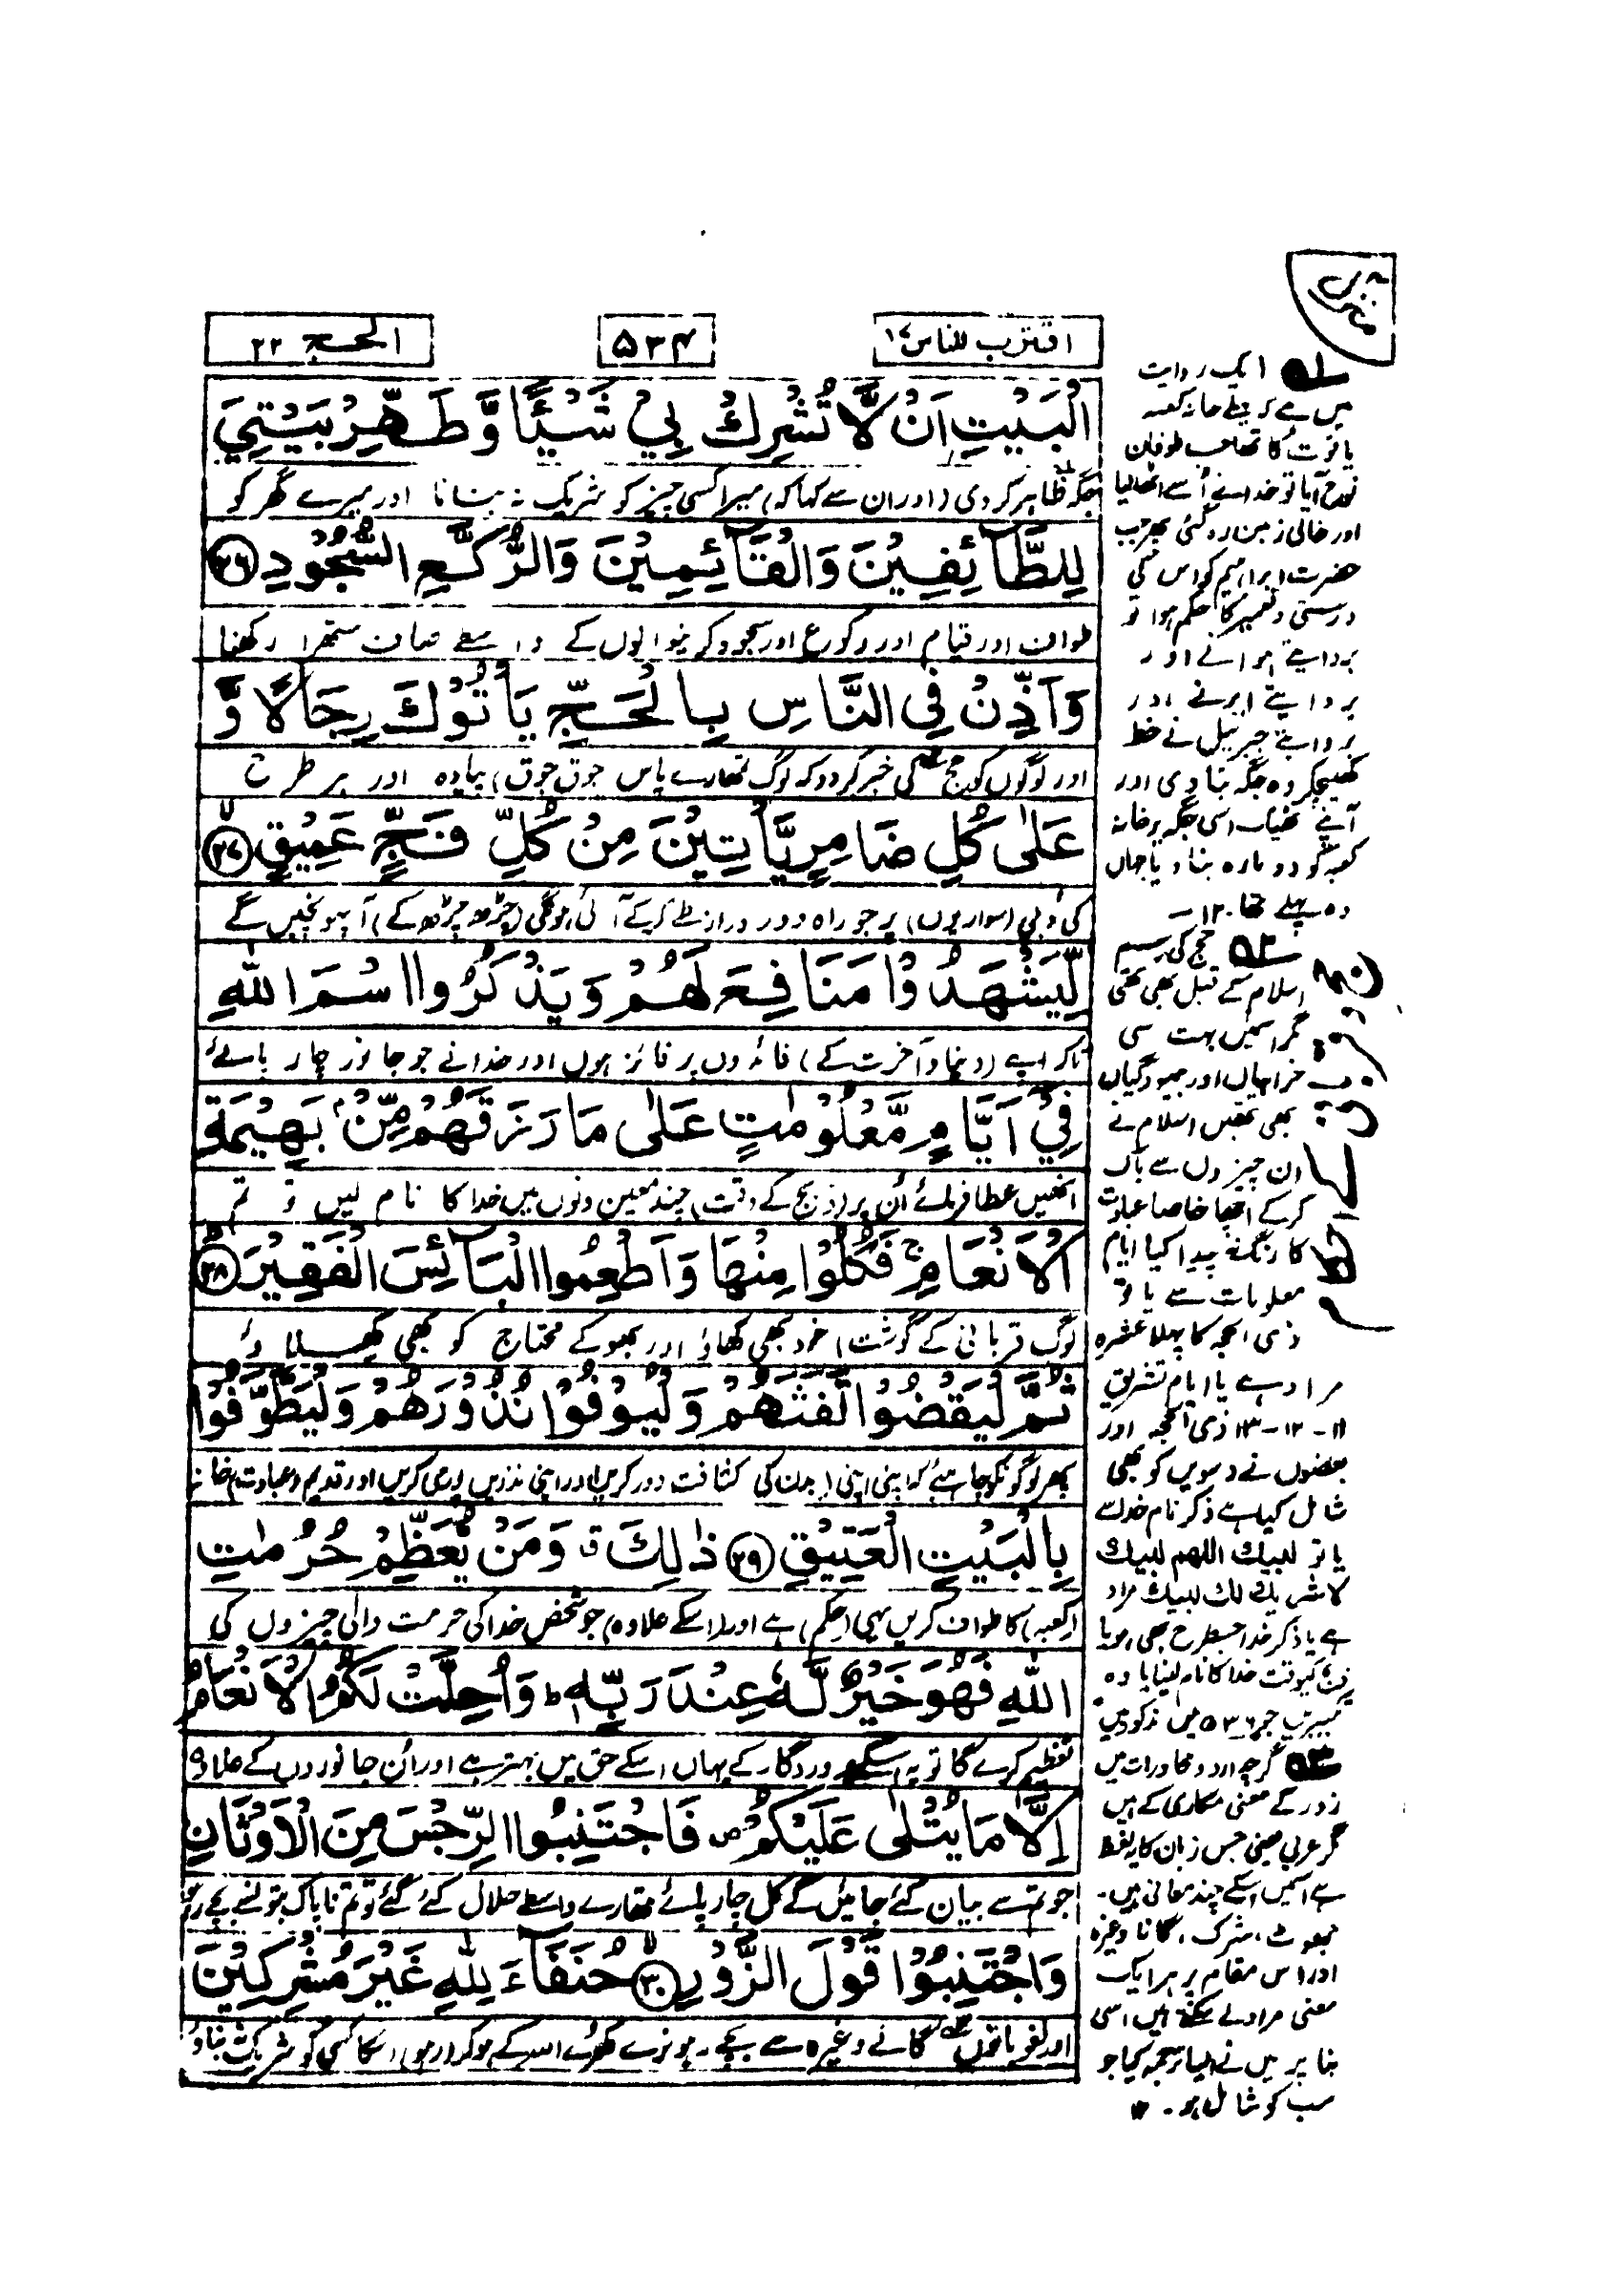 اقترب للناس ١٧
۵۳۴
الحج ۲۲
الْبَيْتِ اَنْ لَّا تُشْرِكْ بِيْ شَيْـًٔا وَّ طَهِّرْ بَيْتِيَ
جگہ ظاہر کر دی (اور ان سے کہا کہ) میرا کسی چیز کو شریک نہ بنانا اور میرے گھر کو
لِلطَّآئِفِيْنَ وَالْقَآئِمِيْنَ وَالرُّكَّعِ السُّجُوْدِ ۲۶
طواف اور قیام اور رکوع اور سجود کرنیوالوں کے واسطے صاف ستھرا رکھنا
وَاَذِّنْ فِي النَّاسِ بِالْحَجِّ يَاْتُوْكَ رِجَالًا وَّ
اور لوگوں کو حج کی خبر کر دو کہ لوگ تمہارے پاس (جوق جوق) پیادہ اور ہر طرح
عَلٰى كُلِّ ضَامِرٍ يَّاْتِيْنَ مِنْ كُلِّ فَجٍّ عَمِيْقٍ ۲۷
کی دبلی (سواریوں) پر جو راہ دور دراز طے کرکے آئی ہونگی (چڑھ چڑھ کے) آ پہونچیں گے
لِّيَشْهَدُوْا مَنَافِعَ لَهُمْ وَيَذْكُرُوا اسْمَ اللّٰهِ
تاکہ اپنے (دنیا و آخرت کے) فائدوں پر فائز ہوں اور خدا نے جو جانور چار پائے
فِيْٓ اَيَّامٍ مَّعْلُوْمٰتٍ عَلٰى مَا رَزَقَهُمْ مِّنْۢ بَهِيْمَةِ
انھیں عطا فرمائے اُن پر (ذبح کے وقت) چند معین دنوں میں خدا کا نام لیں تو تم
الْاَنْعَامِ ۚ فَكُلُوْا مِنْهَا وَاَطْعِمُوا الْبَآئِسَ الْفَقِيْرَ ۲۸
لوگ قربانی کے گوشت) خود بھی کھاؤ اور بھوکے محتاج کو بھی کھلاؤ
ثُمَّ لْيَقْضُوْا تَفَثَهُمْ وَلْيُوْفُوْا نُذُوْرَهُمْ وَلْيَطَّوَّفُوْا
پھر لوگونکو چاہئے کہ اپنی اپنی (بدن کی) کثافت دور کریں اور اپنی نذریں پوری کریں اور قدیم (عبادت) خانہ
بِالْبَيْتِ الْعَتِيْقِ ۲۹ ذٰلِكَ ق وَمَنْ يُّعَظِّمْ حُرُمٰتِ
(کعبہ) کا طواف کریں یہی (حکم) ہے اور (اسکے علاوہ) جو شخص خدا کی حرمت والی چیزوں کی
اللّٰهِ فَهُوَ خَيْرٌ لَّهٗ عِنْدَ رَبِّهٖ ط وَاُحِلَّتْ لَكُمُ الْاَنْعَامُ
تعظیم کرے گا تو یہ اسکے پروردگار کے یہاں اسکے حق میں بہتر ہے اور اُن جانوروں کے علاوہ
اِلَّا مَا يُتْلٰى عَلَيْكُمْ فَاجْتَنِبُوا الرِّجْسَ مِنَ الْاَوْثَانِ
جو تم سے بیان کئے جائیں گے کل چار پائے تمہارے واسطے حلال کئے گئے تو تم ناپاک بتوں سے بچے رہو
وَاجْتَنِبُوْا قَوْلَ الزُّوْرِ ۳۰ حُنَفَآءَ لِلّٰهِ غَيْرَ مُشْرِكِيْنَ
اور لغو باتوں گانے وغیرہ سے بچے رہو نرے کھرے اللہ کے ہو کر (رہو) اسکا کسی کو شریک نہ بناؤ
۵۱ ایک روایت
میں ہے کہ پہلے خانہ کعبہ
یاقوت کا تھا جب طوفان
نوح آیا تو خدا نے اُسے اٹھالیا
اور خالی زمین رہ گئی پھر جب
حضرت ابراہیم کو اس کی
درستی و تعمیر کا حکم ہوا تو
بروایتے ہوا نے اور
بروایتے ابر نے اور
بروایتے جبرئیل نے خط
کھینچکر وہ جگہ بتا دی اور
آپنے ٹھیک اسی جگہ پر خانہ
کعبہ کو دوبارہ بنا دیا جہاں
وہ پہلے تھا۔ ۱۲
۵۲ حج کی رسم
اسلام کے قبل بھی تھی
مگر اسمیں بہت سی
خرابیاں اور بیہودگیاں
بھی تھیں اسلام نے
ان چیزوں سے پاک
کرکے اچھا خاصا عبادت
کا رنگ پیدا کیا ایام
معلومات سے یا تو
ذی الحجہ کا پہلا عشرہ
مراد ہے یا ایام تشریق
۱۱-۱۲-۱۳ ذی الحجہ اور
بعضوں نے دسویں کو بھی
شامل کیا ہے ذکر نام خدا سے
یا تو لبیك اللهم لبیك
لا شریك لك لبیك مراد
ہے یا ذکر خدا جسطرح بھی ہو یا
ذبح کیوقت خدا کا نام لینا یا وہ
۵۳ گرچہ اردو محاورات میں
زور کے معنی مکاری کے ہیں
مگر عربی میں جس زبان کا یہ لفظ
ہے اسمیں اسکے چند معانی ہیں۔
جھوٹ، شرک، گانا وغیرہ
اور اس مقام پر ہر ایک
معنی مراد لے سکتے ہیں اسی
بنا پر میں نے ایسا ترجمہ کیا جو
سب کو شامل ہو۔ ۱۲